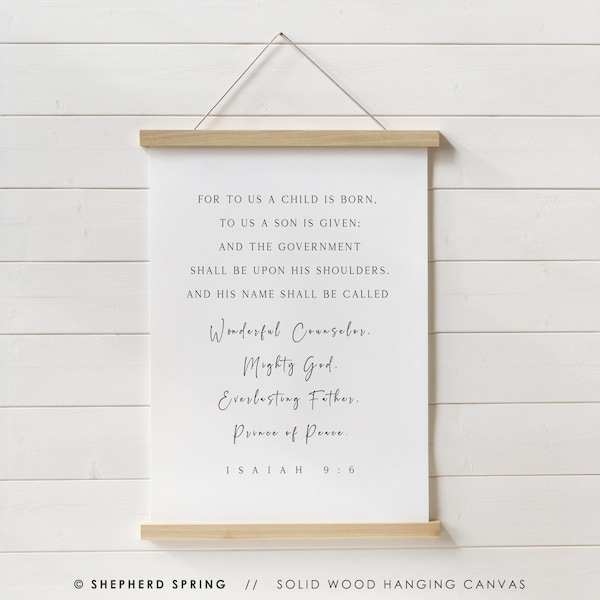 FOR TO US A CHILD IS BORN,
TO US A SON IS GIVEN;
AND THE GOVERNMENT
SHALL BE UPON HIS SHOULDERS.
AND HIS NAME SHALL BE CALLED
Wonderful Counselor,
Mighty God,
Everlasting Father,
Prince of Peace.
ISAIAH 9:6
© SHEPHERD SPRING // SOLID WOOD HANGING CANVAS